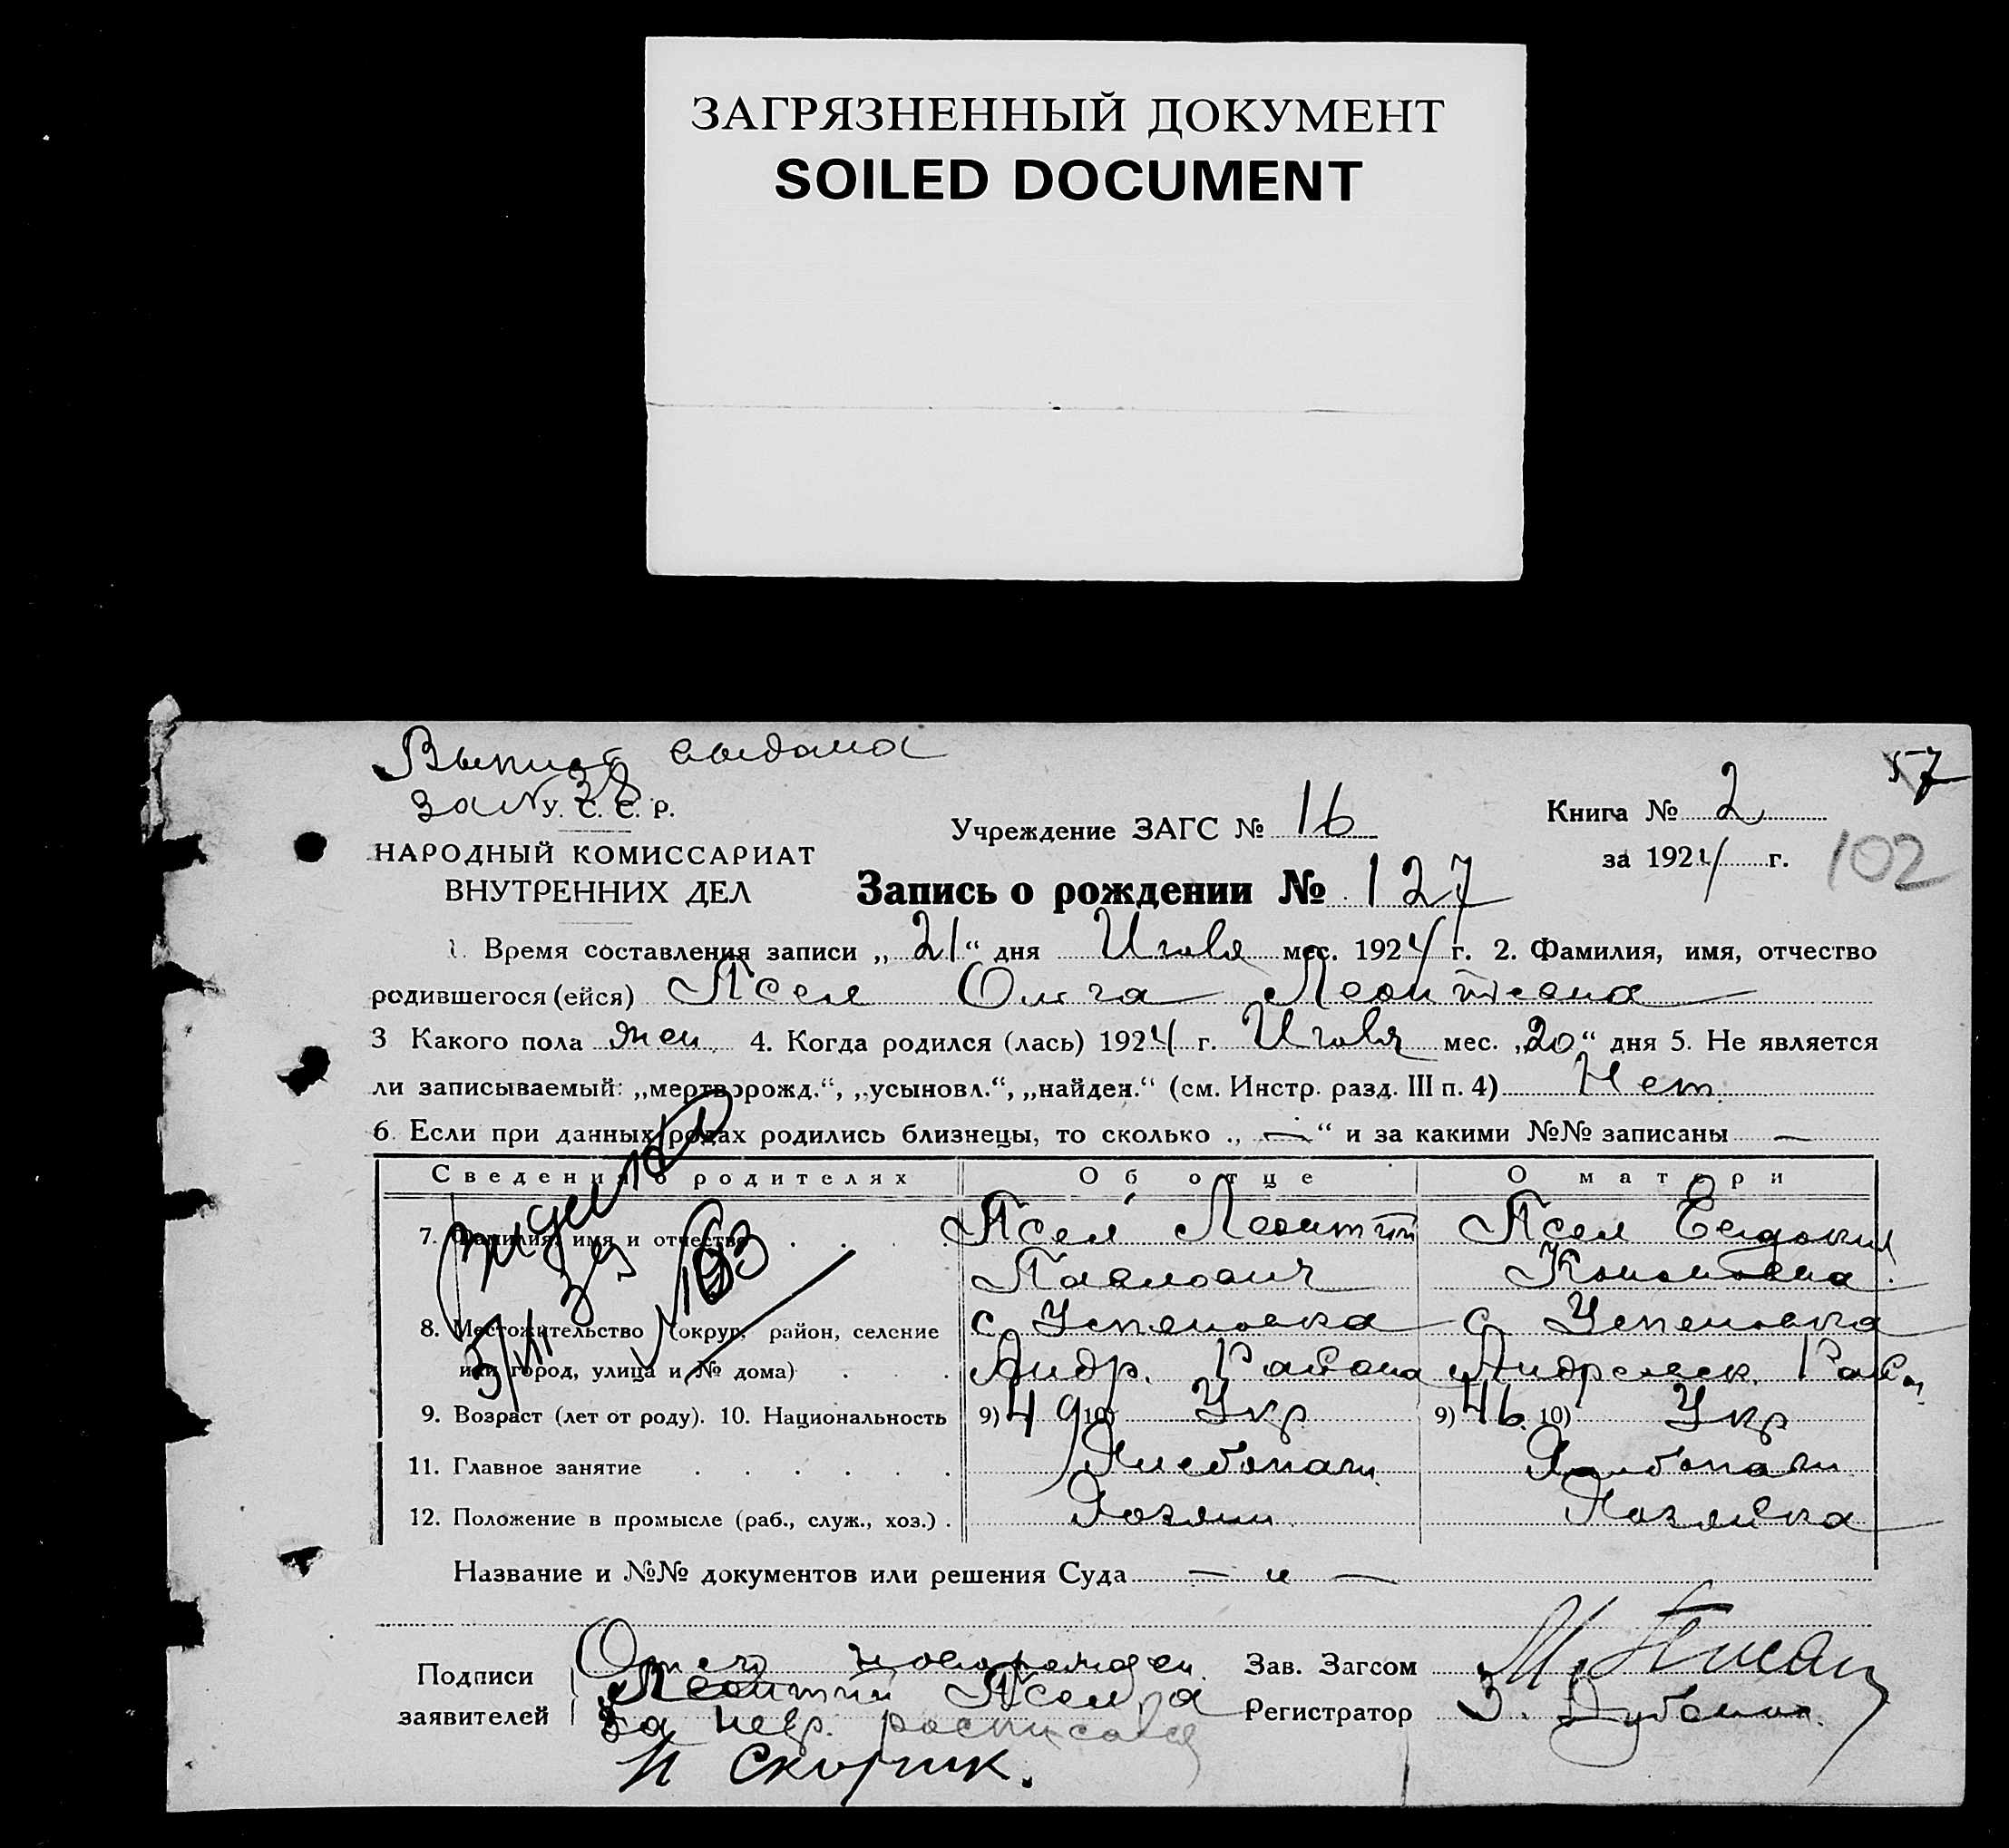 ЗАГРЯЗНЕННЫЙ ДОКУМЕНТ
SOILED DOCUMENT
57
выдана
за №
У. С. С. Р.
НАРОДНЫЙ КОМИССАРИАТ
ВНУТРЕННИХ ДЕЛ
Учреждение ЗАГС № 16
Книга № 2
за 1924 г.
102
Запись о рождении № 127
1. Время составления записи „21“ дня Июля мес. 1924 г. 2. Фамилия, имя, отчество
родившегося (ейся) Псел Ольга Леонтиевна
3 Какого пола жен. 4. Когда родился (лась) 1924 г. Июля мес. „20“ дня 5. Не является
ли записываемый: „мертворожд.“, „усыновл.“, „найден.“ (см. Инстр. разд. III п. 4) Нет
6. Если при данных родах родились близнецы, то сколько „—“ и за какими №№ записаны —
Сведения о родителях Об отце О матери
7. Фамилия, имя и отчество Псел Леонтий Псел Евдокия
Павлович Кононовна
8. Местожительство (округ, район, селение с Успеновка с Успеновка
или город, улица и № дома) Андр. Района Андреевск. Район
9. Возраст (лет от роду). 10. Национальность 9) 49 10) Укр 9) 46 10) Укр
11. Главное занятие Хлебопаш. Хлебопаш.
12. Положение в промысле (раб., служ., хоз.) Хозяин Хозяйка
Название и №№ документов или решения Суда — " —
Подписи
заявителей
Отец новорожден.
Леонтий Псел
За негр. расписался
Скорик.
Зав. Загсом
Регистратор